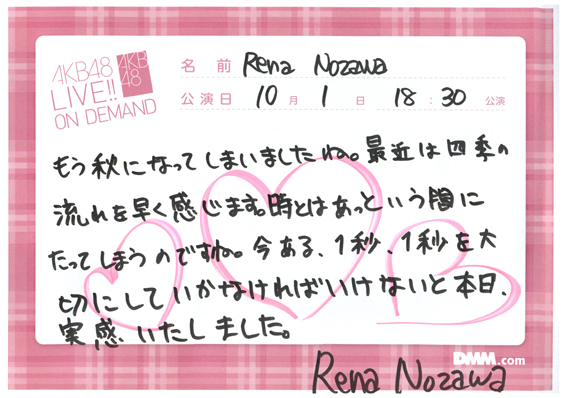 AKB48
LIVE!!
ON DEMAND
AKB
48
名前 Rena Nozawa
公演日 10月 1日 18:30 公演
もう秋になってしまいましたね。最近は四季の
流れを早く感じます。時とはあっという間に
たってしまうのですね。今ある、1秒、1秒を大
切にしていかなければいけないと本日、
実感いたしました。
DMM.com
Rena Nozawa